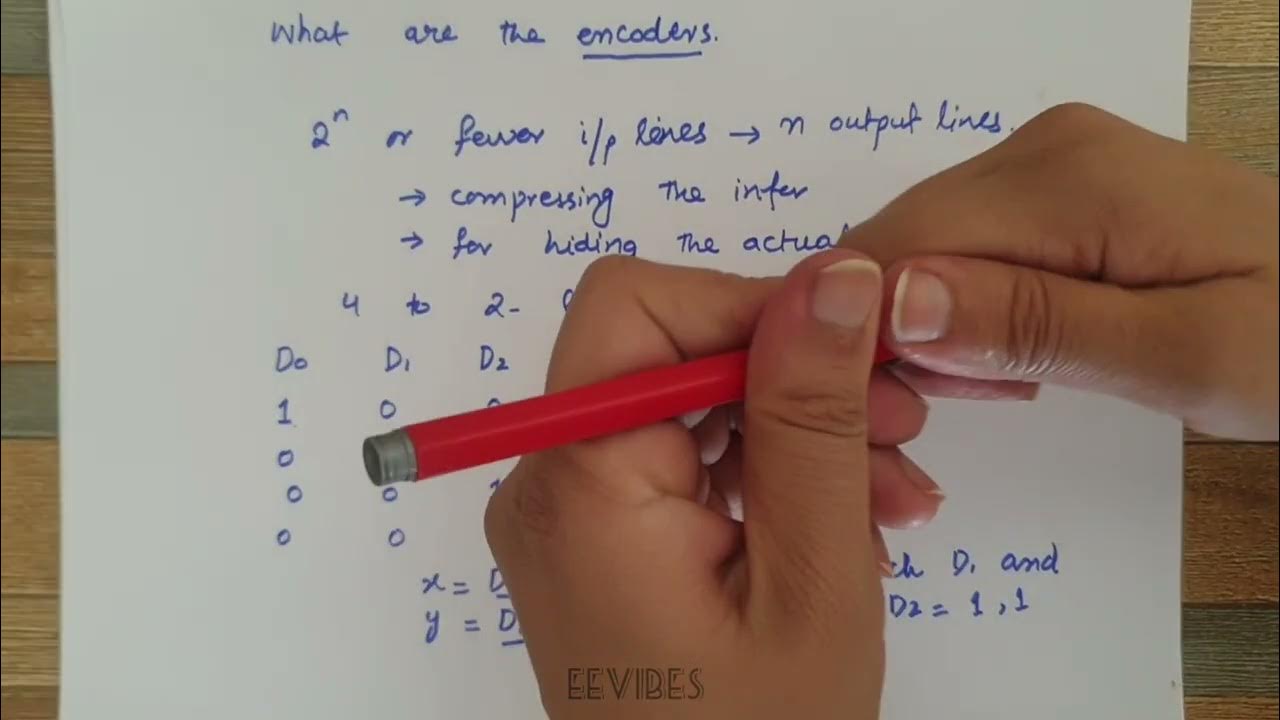 What are the encoders.
2ⁿ or fewer i/p lines → n output lines.
→ compressing the infer
→ for hiding the actual
4 to 2-
D0 D1 D2
1 0
0
0 0 1
0 0
x = D
y = D
D1 and
D2 = 1,1
EEVIBES